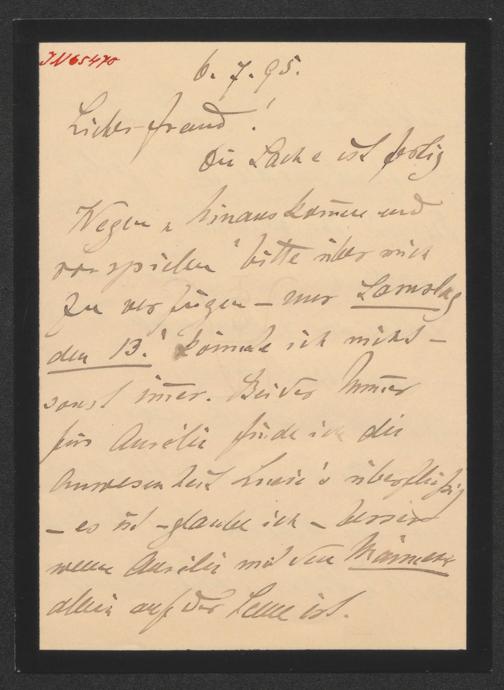 IN 65470
6. 7. 95.
Lieber Freund!
Die Sache ist fertig
Wegen „hinauskommen und
vorspielen" bitte über mich
zu verfügen – nur Samstag
den 13.' könnte ich nicht –
sonst immer. Bei der Nummer
für Aurélie finde ich die
Anwesenheit Lucie's überflüßig
– es ist – glaube ich – besser
wenn Aurélie mit den Männern
allein auf der Scene ist.